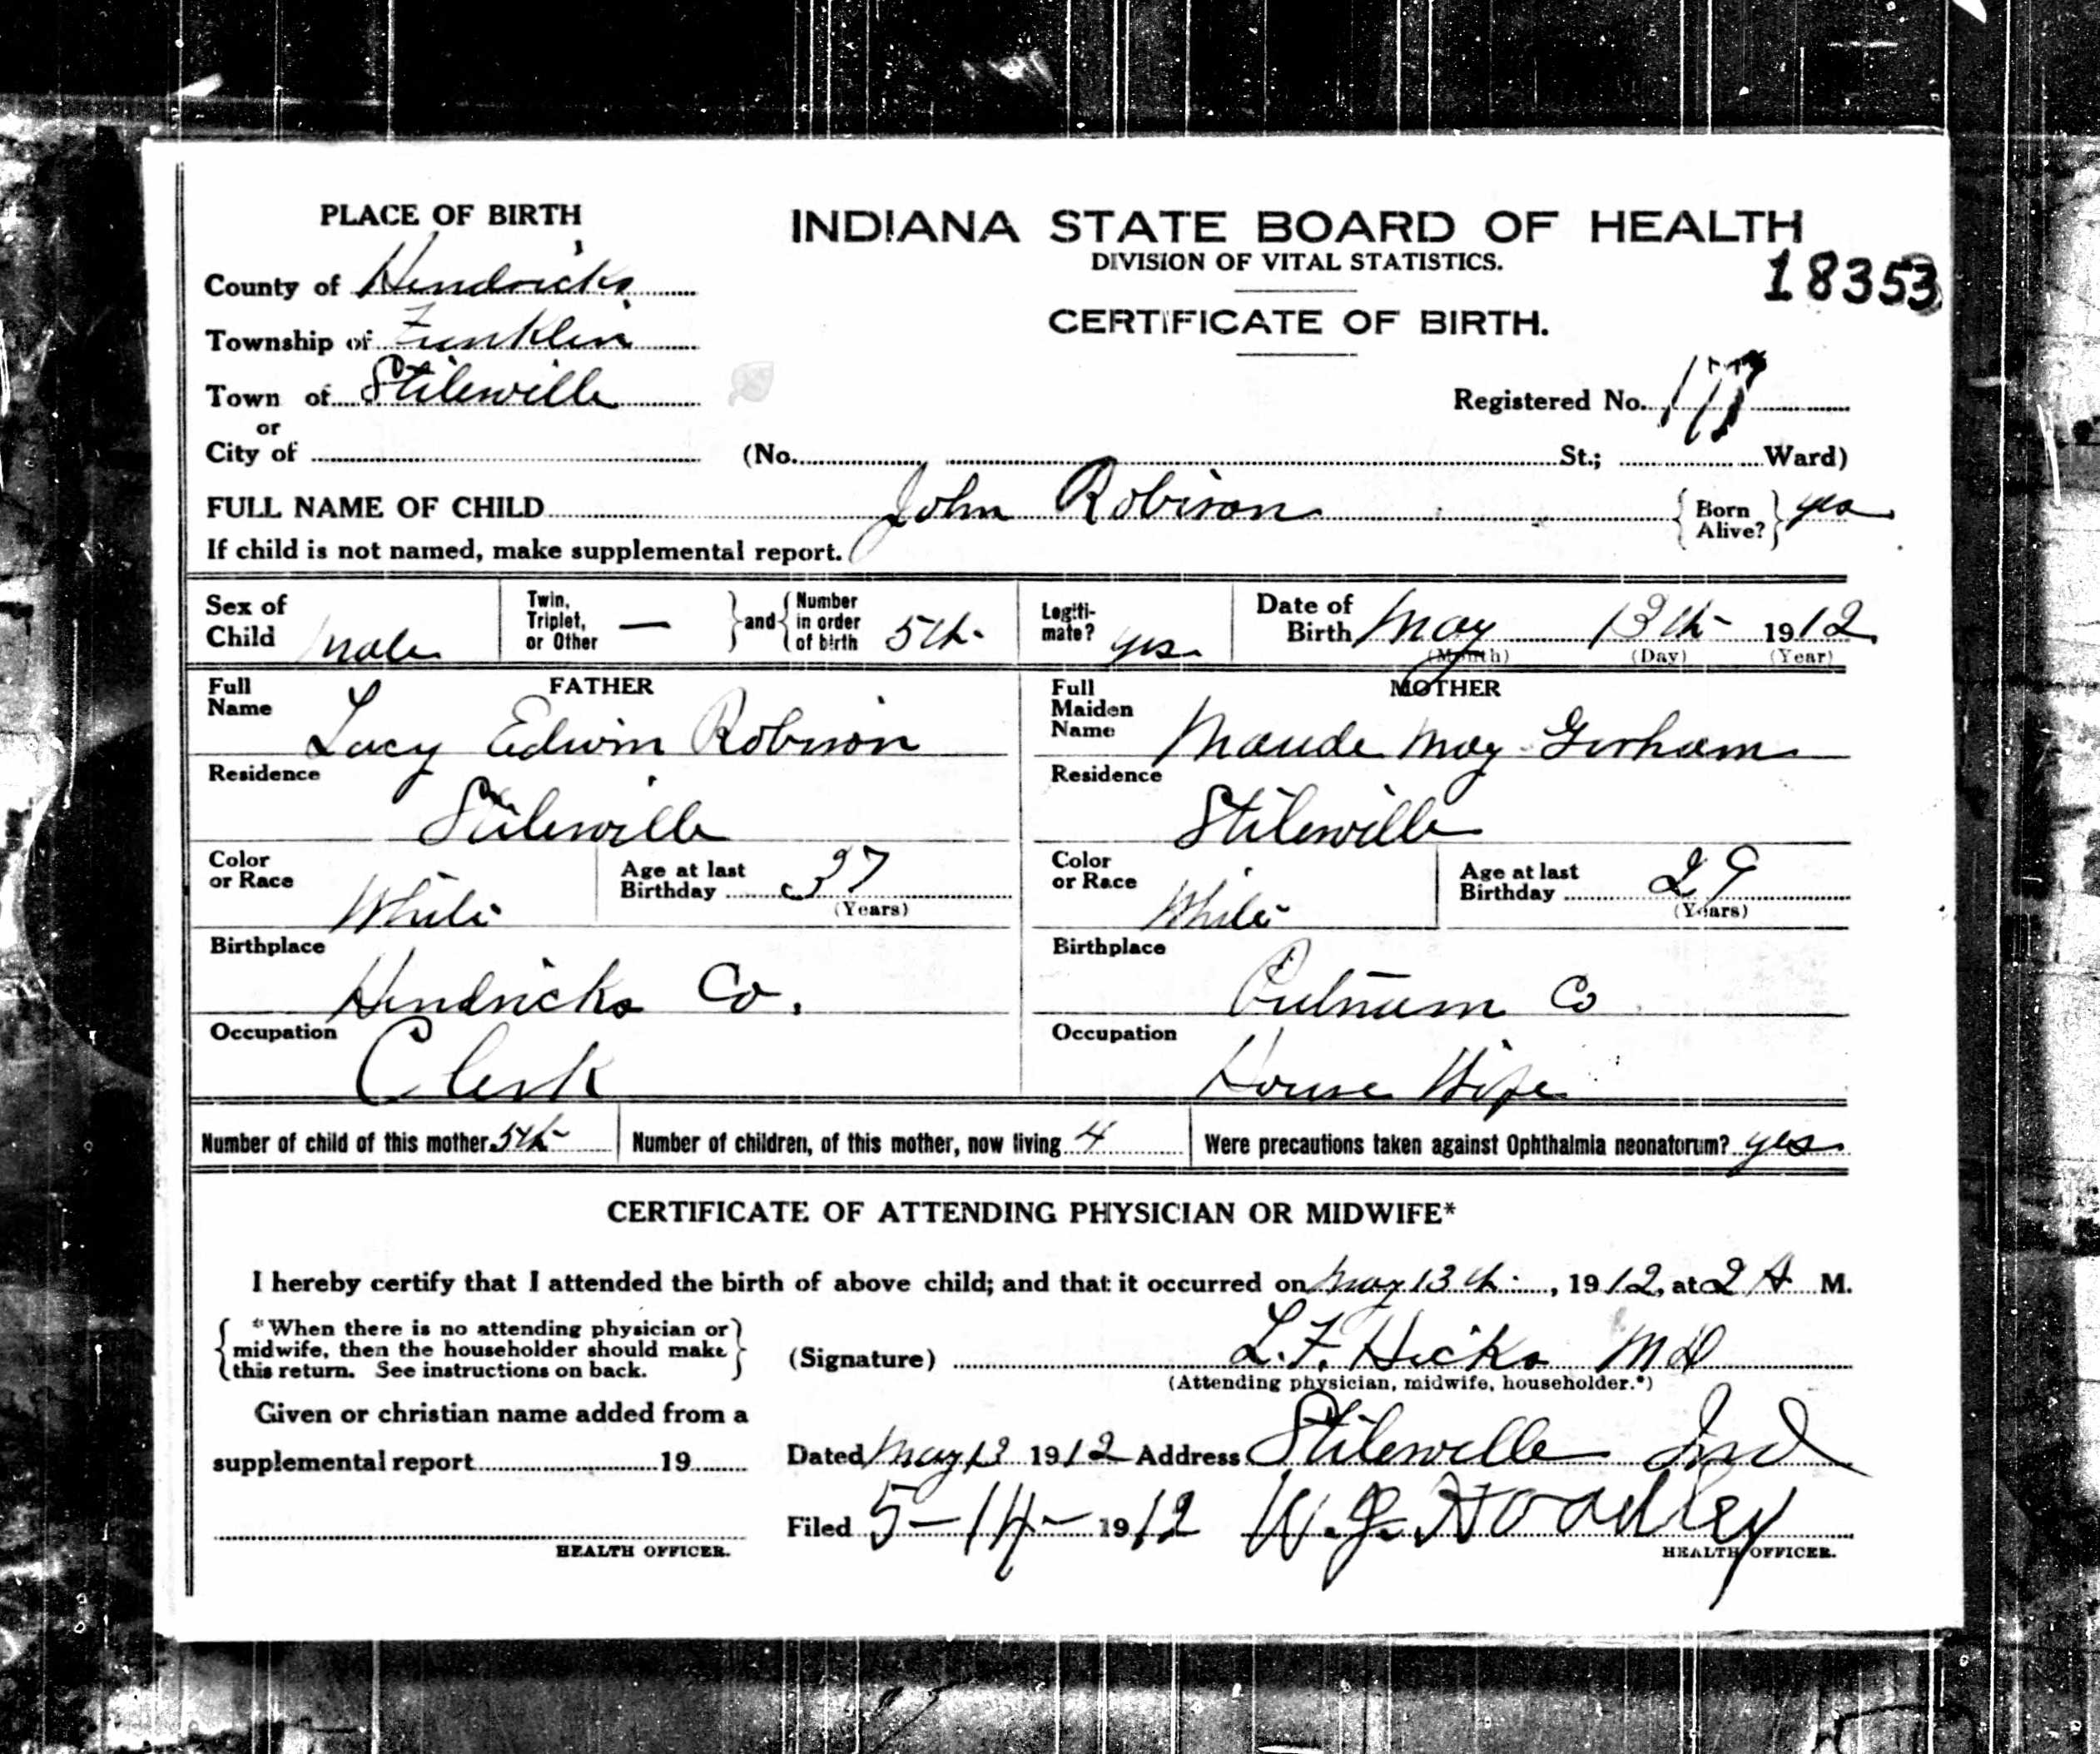 PLACE OF BIRTH
INDIANA STATE BOARD OF HEALTH
DIVISION OF VITAL STATISTICS.
18353
County of Hendricks
CERTIFICATE OF BIRTH.
Township of Funklin
Town of Stilesville
Registered No. 177
or
City of (No. St.; Ward)
FULL NAME OF CHILD John Robison Born Alive? yes
If child is not named, make supplemental report.
Sex of Child male Twin, Triplet, or Other — and Number in order of birth 5th Legitimate? yes Date of Birth May 13th 1912
(Month) (Day) (Year)
FATHER
MOTHER
Full Name Lacy Edwin Robison
Full Maiden Name Maude May Gorham
Residence Stilesville
Residence Stilesville
Color or Race White Age at last Birthday 37 (Years)
Color or Race White Age at last Birthday 29 (Years)
Birthplace Hendricks Co.
Birthplace Putnam Co
Occupation Clerk
Occupation House Wife
Number of child of this mother 5th Number of children, of this mother, now living 4 Were precautions taken against Ophthalmia neonatorum? yes
CERTIFICATE OF ATTENDING PHYSICIAN OR MIDWIFE*
I hereby certify that I attended the birth of above child; and that it occurred on May 13th, 1912, at 2 A M.
*When there is no attending physician or
midwife, then the householder should make
this return. See instructions on back.
(Signature) L.F. Hicks MD
(Attending physician, midwife, householder.*)
Given or christian name added from a
supplemental report 19
Dated May 13 1912 Address Stilesville Ind
Filed 5-14-1912 W.J. Hoadley
HEALTH OFFICER.
HEALTH OFFICER.